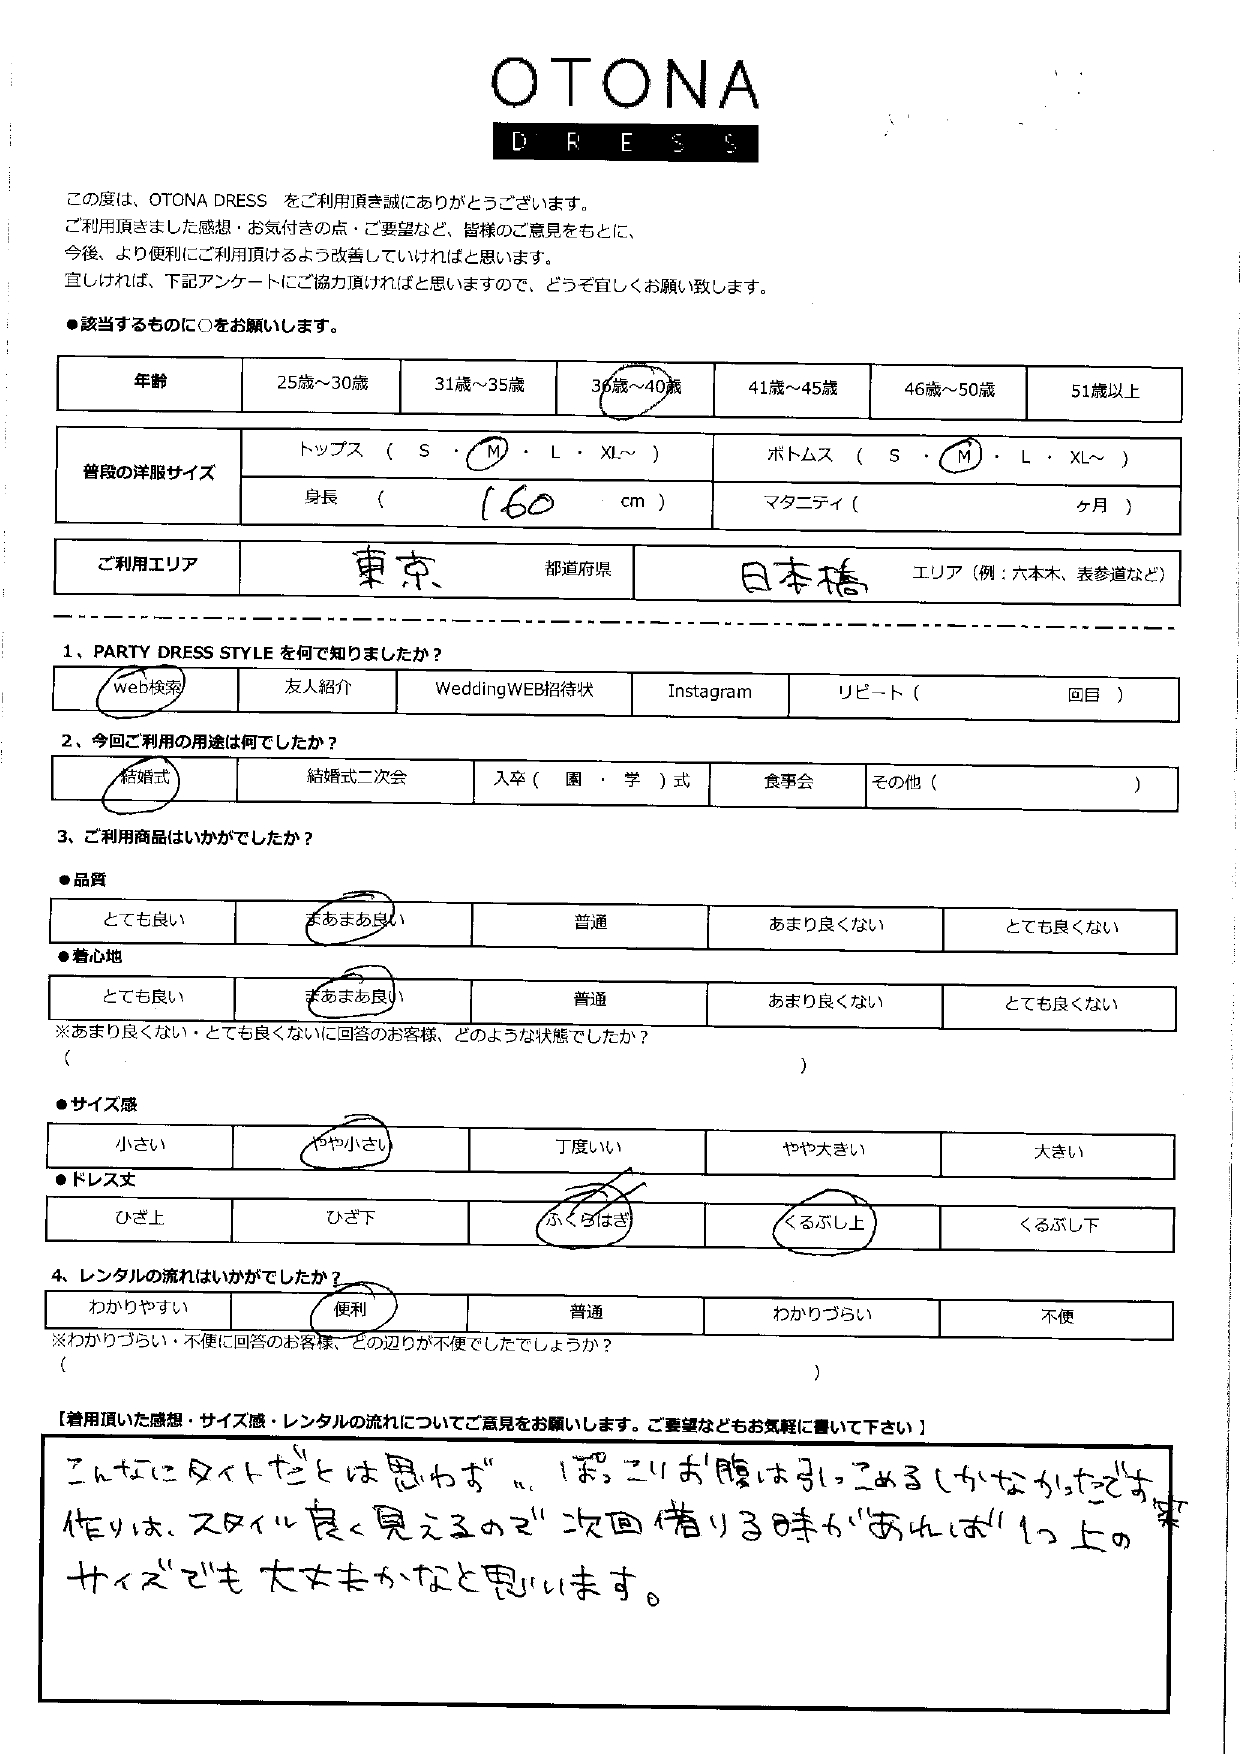 OTONA
DRESS
この度は、OTONA DRESS をご利用頂き誠にありがとうございます。
ご利用頂きました感想・お気付きの点・ご要望など、皆様のご意見をもとに、
今後、より便利にご利用頂けるよう改善していければと思います。
宜しければ、下記アンケートにご協力頂ければと思いますので、どうぞ宜しくお願い致します。
●該当するものに○をお願いします。
年齢 25歳～30歳 31歳～35歳 36歳～40歳 41歳～45歳 46歳～50歳 51歳以上
普段の洋服サイズ トップス ( S ・ M ・ L ・ XL～ ) ボトムス ( S ・ M ・ L ・ XL～ )
身長 ( 160 cm ) マタニティ ( ヶ月 )
ご利用エリア 東京 都道府県 日本橋 エリア（例：六本木、表参道など）
1、PARTY DRESS STYLE を何で知りましたか？
web検索 友人紹介 WeddingWEB招待状 Instagram リピート ( 回目 )
2、今回ご利用の用途は何でしたか？
結婚式 結婚式二次会 入卒 ( 園 ・ 学 ) 式 食事会 その他 ( )
3、ご利用商品はいかがでしたか？
●品質
とても良い まあまあ良い 普通 あまり良くない とても良くない
●着心地
とても良い まあまあ良い 普通 あまり良くない とても良くない
※あまり良くない・とても良くないに回答のお客様、どのような状態でしたか？
( )
●サイズ感
小さい やや小さい 丁度いい やや大きい 大きい
●ドレス丈
ひざ上 ひざ下 ふくらはぎ くるぶし上 くるぶし下
4、レンタルの流れはいかがでしたか？
わかりやすい 便利 普通 わかりづらい 不便
※わかりづらい・不便に回答のお客様、どの辺りが不便でしたでしょうか？
( )
【着用頂いた感想・サイズ感・レンタルの流れについてご意見をお願いします。ご要望などもお気軽に書いて下さい】
こんなにタイトだとは思わず… ぽっこりお腹は引っこめるしかなかったです笑
作りは、スタイル良く見えるので次回借りる時があれば1つ上の
サイズでも大丈夫かなと思います。